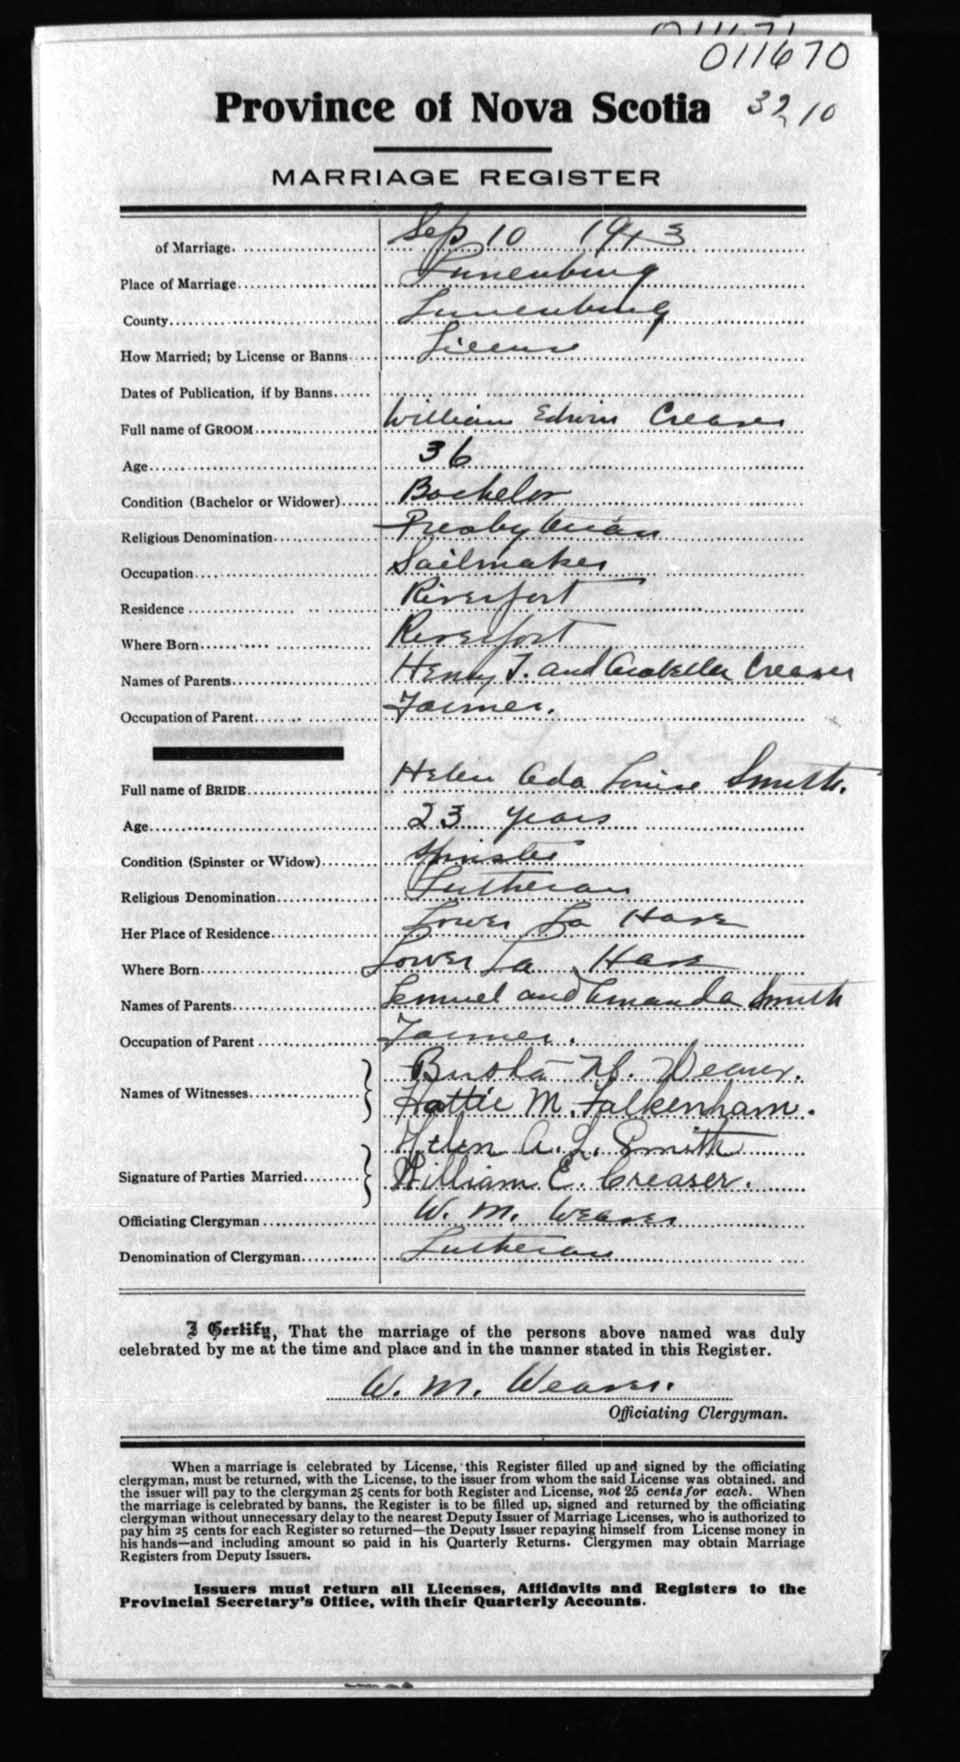 011671
011670
Province of Nova Scotia 3210
MARRIAGE REGISTER
of Marriage Sep 10 1913
Place of Marriage Lunenburg
County Lunenburg
How Married; by License or Banns License
Dates of Publication, if by Banns
Full name of GROOM William Edwin Creaser
Age 36
Condition (Bachelor or Widower) Bachelor
Religious Denomination Presbyterian
Occupation Sailmaker
Residence Riverport
Where Born Riverport
Names of Parents Henry T. and Arabella Creaser
Occupation of Parent Farmer.
Full name of BRIDE Helen Ada Louise Smith.
Age 23 years
Condition (Spinster or Widow) Spinster
Religious Denomination Lutheran
Her Place of Residence Lower La Have
Where Born Lower La Have
Names of Parents Lemuel and Amanda Smith
Occupation of Parent Farmer.
Names of Witnesses Weaver.
Hattie M. Falkenham.
Helen A. L. Smith
Signature of Parties Married William E. Creaser.
Officiating Clergyman W. M. Weaver
Denomination of Clergyman Lutheran
I Certify, That the marriage of the persons above named was duly
celebrated by me at the time and place and in the manner stated in this Register.
W. M. Weaver.
Officiating Clergyman.
When a marriage is celebrated by License, this Register filled up and signed by the officiating
clergyman, must be returned, with the License, to the issuer from whom the said License was obtained, and
the issuer will pay to the clergyman 25 cents for both Register and License, not 25 cents for each. When
the marriage is celebrated by banns, the Register is to be filled up, signed and returned by the officiating
clergyman without unnecessary delay to the nearest Deputy Issuer of Marriage Licenses, who is authorized to
pay him 25 cents for each Register so returned—the Deputy Issuer repaying himself from License money in
his hands—and including amount so paid in his Quarterly Returns. Clergymen may obtain Marriage
Registers from Deputy Issuers.
Issuers must return all Licenses, Affidavits and Registers to the
Provincial Secretary's Office, with their Quarterly Accounts.